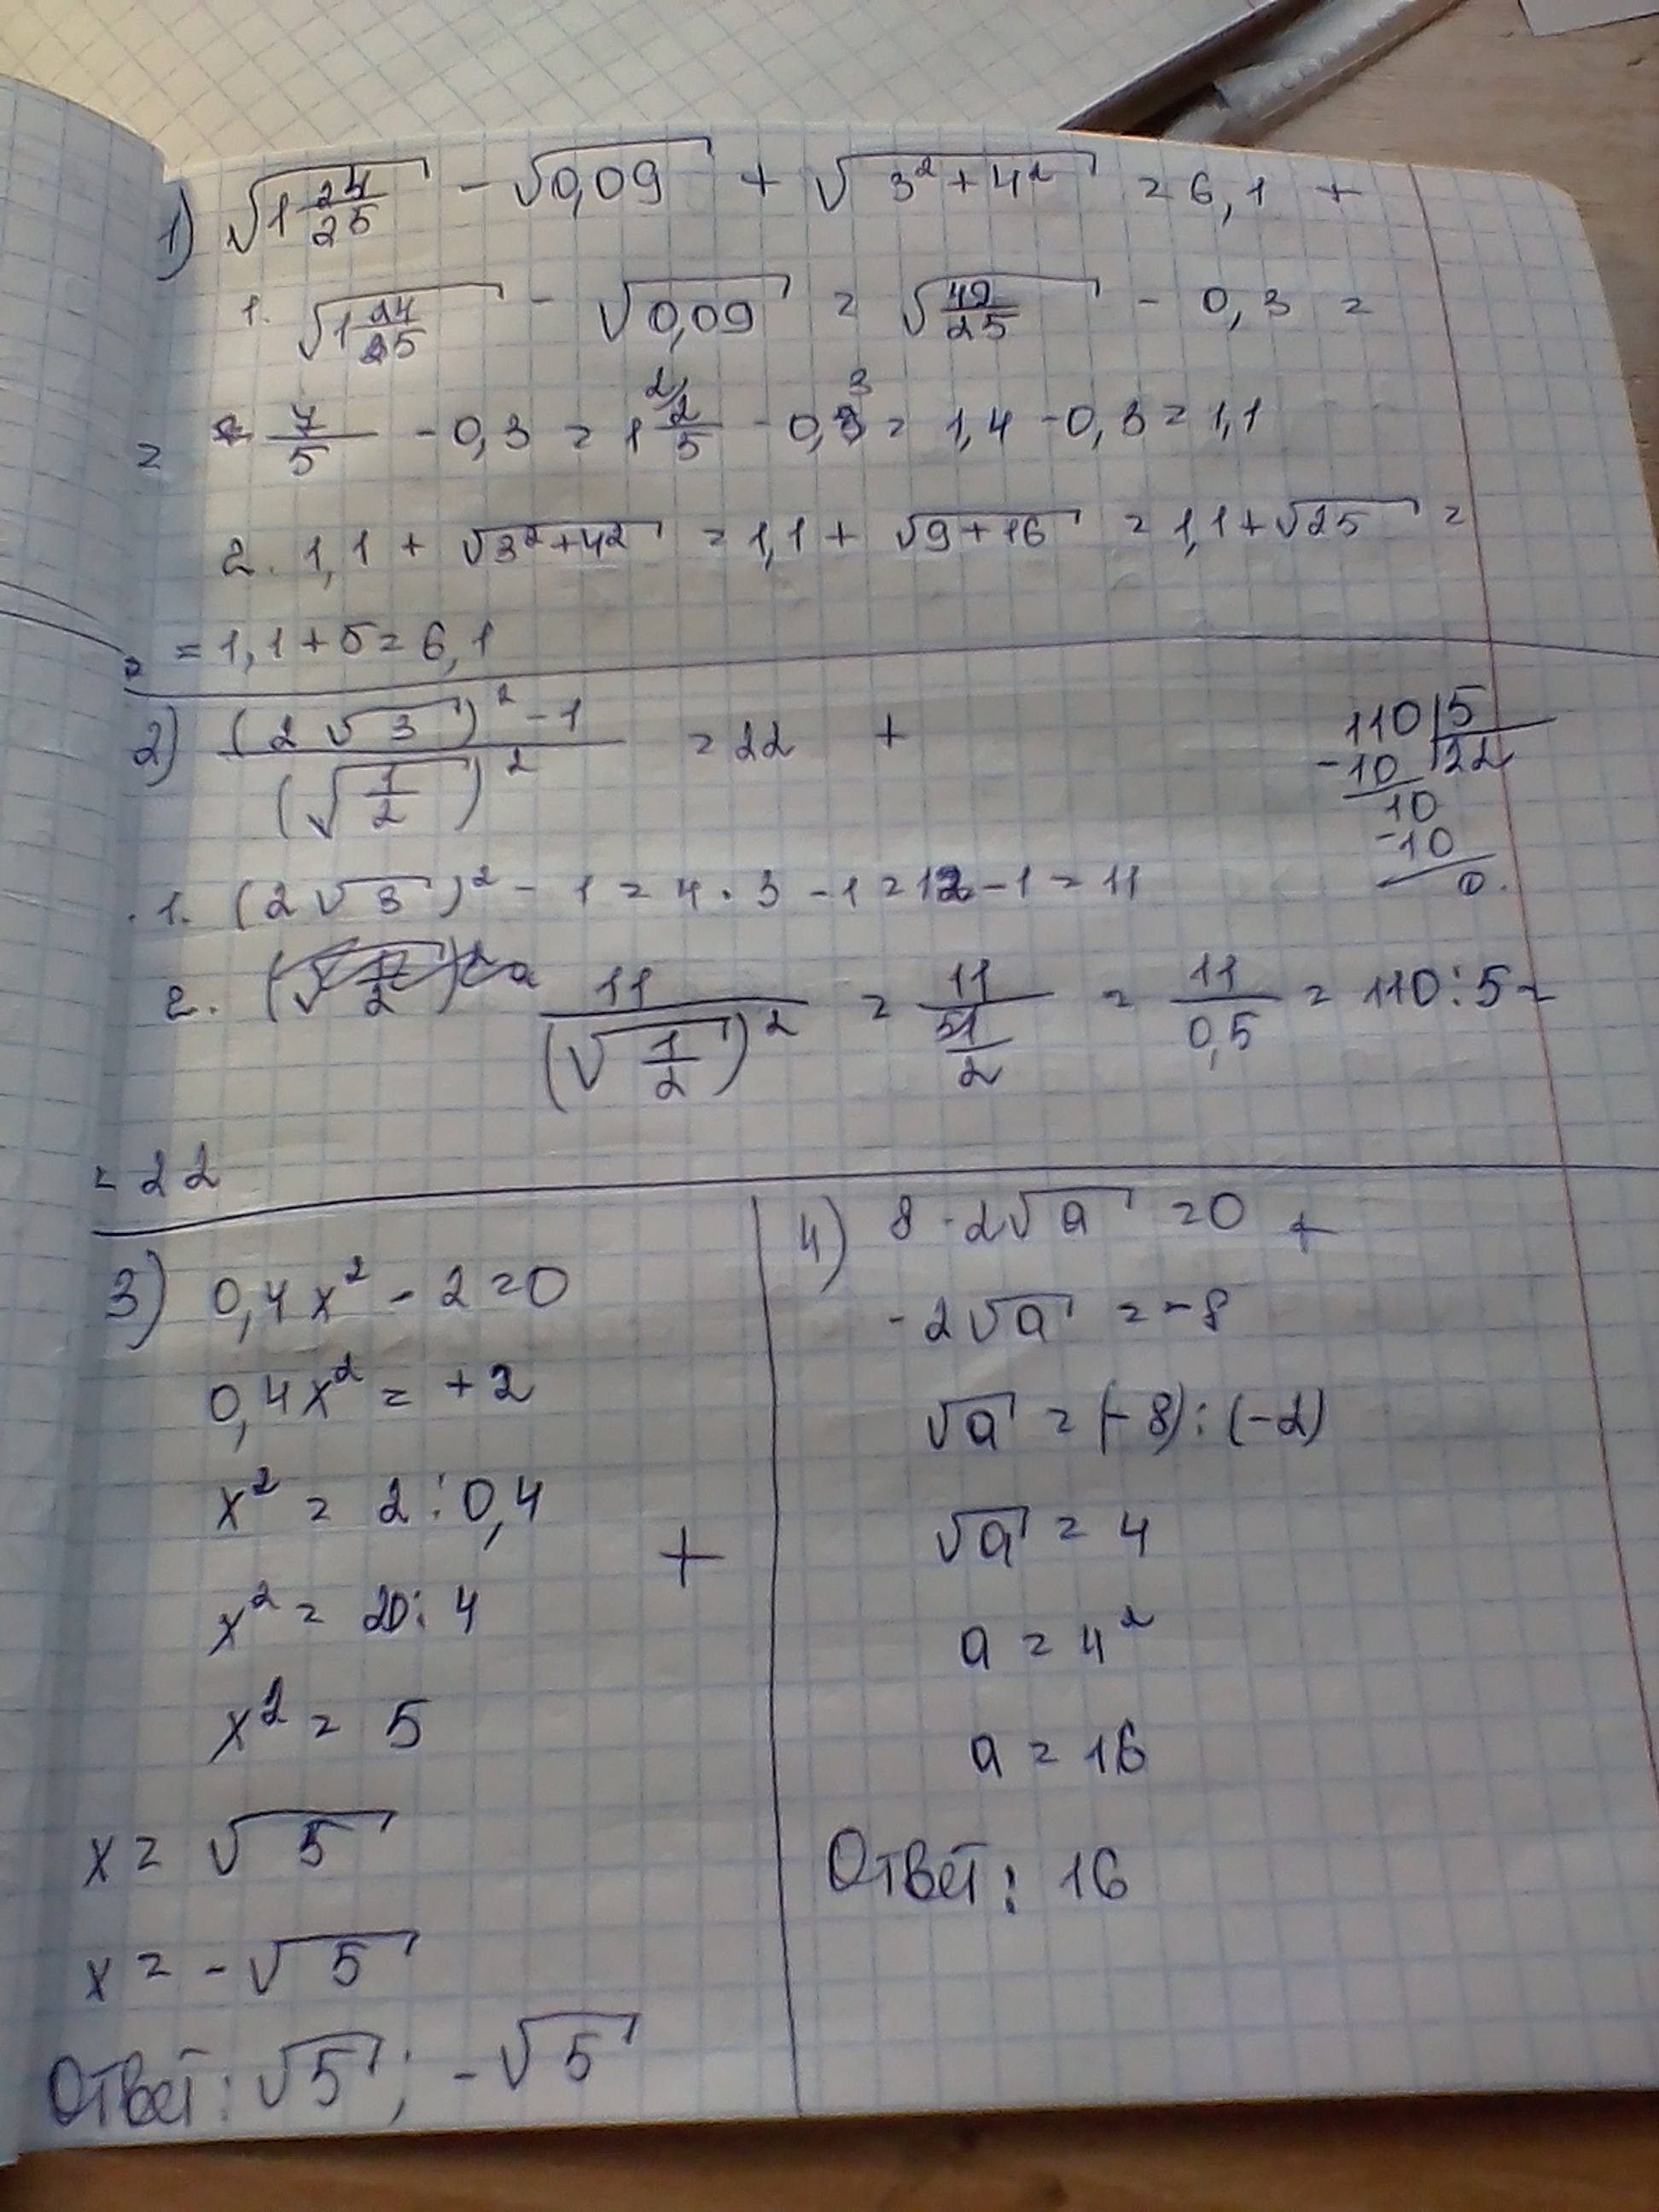 1) √(1 24/25) - √0,09 + √(3² + 4²) = 6,1 +
1. √(1 24/25) - √0,09 = √(49/25) - 0,3 =
= 7/5 - 0,3 = 1 2/5 - 0,3 = 1,4 - 0,3 = 1,1
2. 1,1 + √(3²+4²) = 1,1 + √(9+16) = 1,1 + √25 =
= 1,1 + 5 = 6,1
2) ((2√3)² - 1)/(√(1/2))² = 22 +
110 | 5
-10 | 22
10
-10
0.
1. (2√3)² - 1 = 4 · 3 - 1 = 12 - 1 = 11
2. 11/(√(1/2))² = 11/(1/2) = 11/0,5 = 110 : 5 =
= 22
3) 0,4x² - 2 = 0
0,4x² = +2
x² = 2 : 0,4
+
x² = 20 : 4
x² = 5
x = √5
x = -√5
Ответ: √5; -√5
4) 8 - 2√a = 0 +
-2√a = -8
√a = (-8) : (-2)
√a = 4
a = 4²
a = 16
Ответ: 16